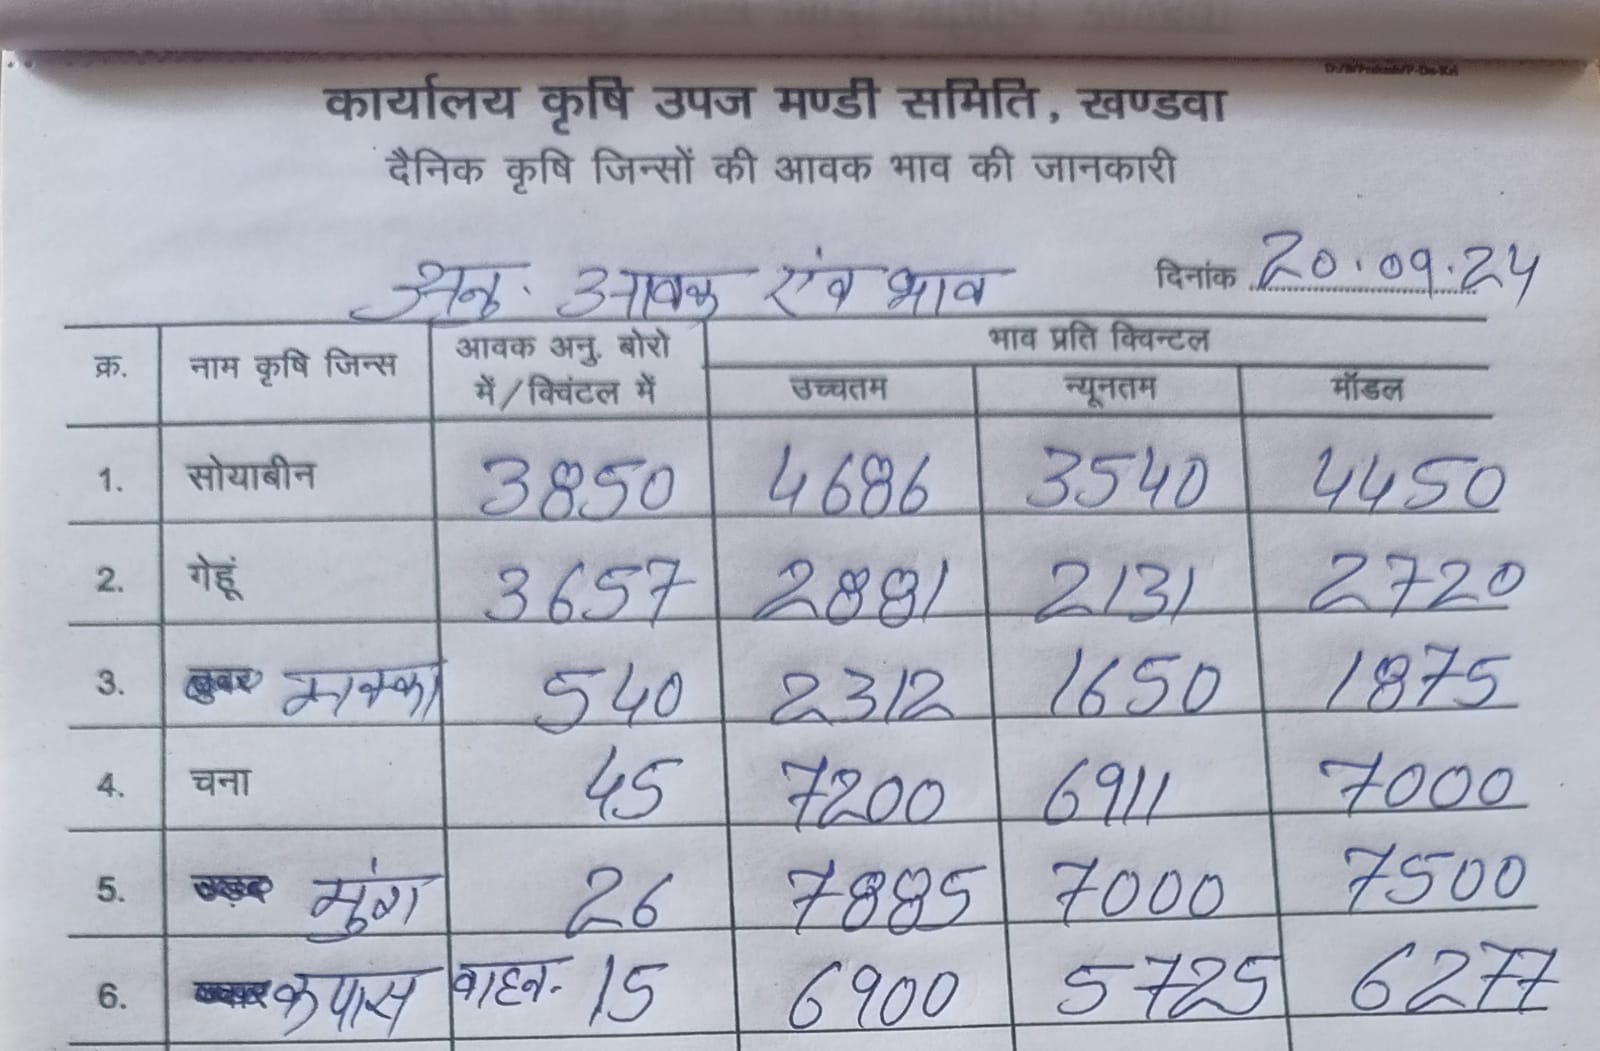 कार्यालय कृषि उपज मण्डी समिति, खण्डवा
दैनिक कृषि जिन्सों की आवक भाव की जानकारी
अनु. आवक एंव भाव दिनांक 20.09.24
क्र. नाम कृषि जिन्स आवक अनु. बोरो में/क्विंटल में भाव प्रति क्विन्टल
उच्चतम न्यूनतम मॉडल
1. सोयाबीन 3850 4686 3540 4450
2. गेहूं 3657 2881 2131 2720
3. मक्का 540 2312 1650 1875
4. चना 45 7200 6911 7000
5. मुंग 26 7885 7000 7500
6. कपास वाहन- 15 6900 5725 6277